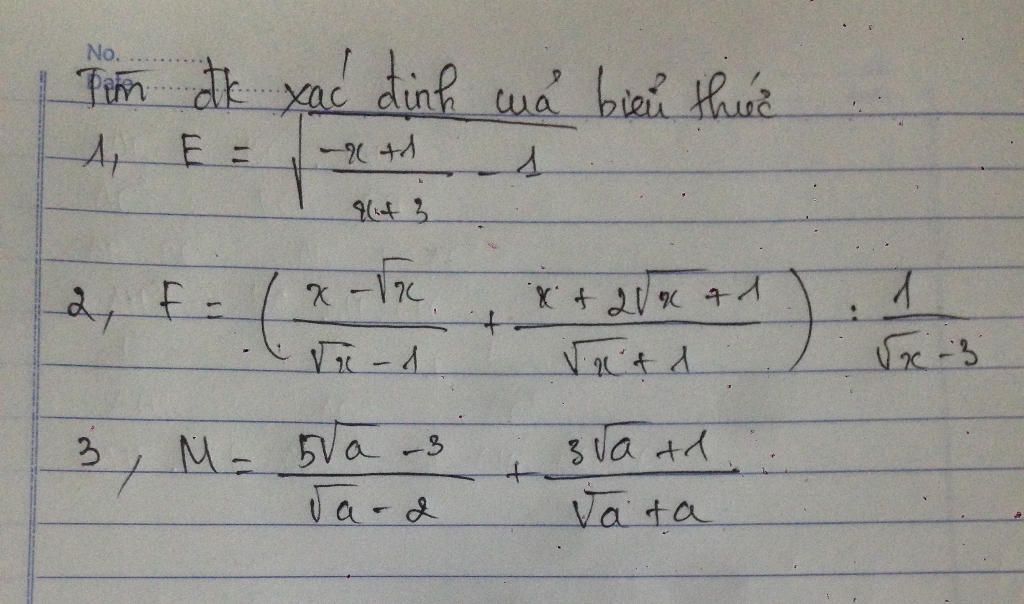 No. ............
Date ............
Tìm đk xác định cuả biểu thức
1, E = √((-x + 1)/(x + 3) - 1)
2, F = ((x - √x)/(√x - 1) + (x + 2√x + 1)/(√x + 1)) : 1/(√x - 3)
3, M = (5√a - 3)/(√a - 2) + (3√a + 1)/(√a + a)